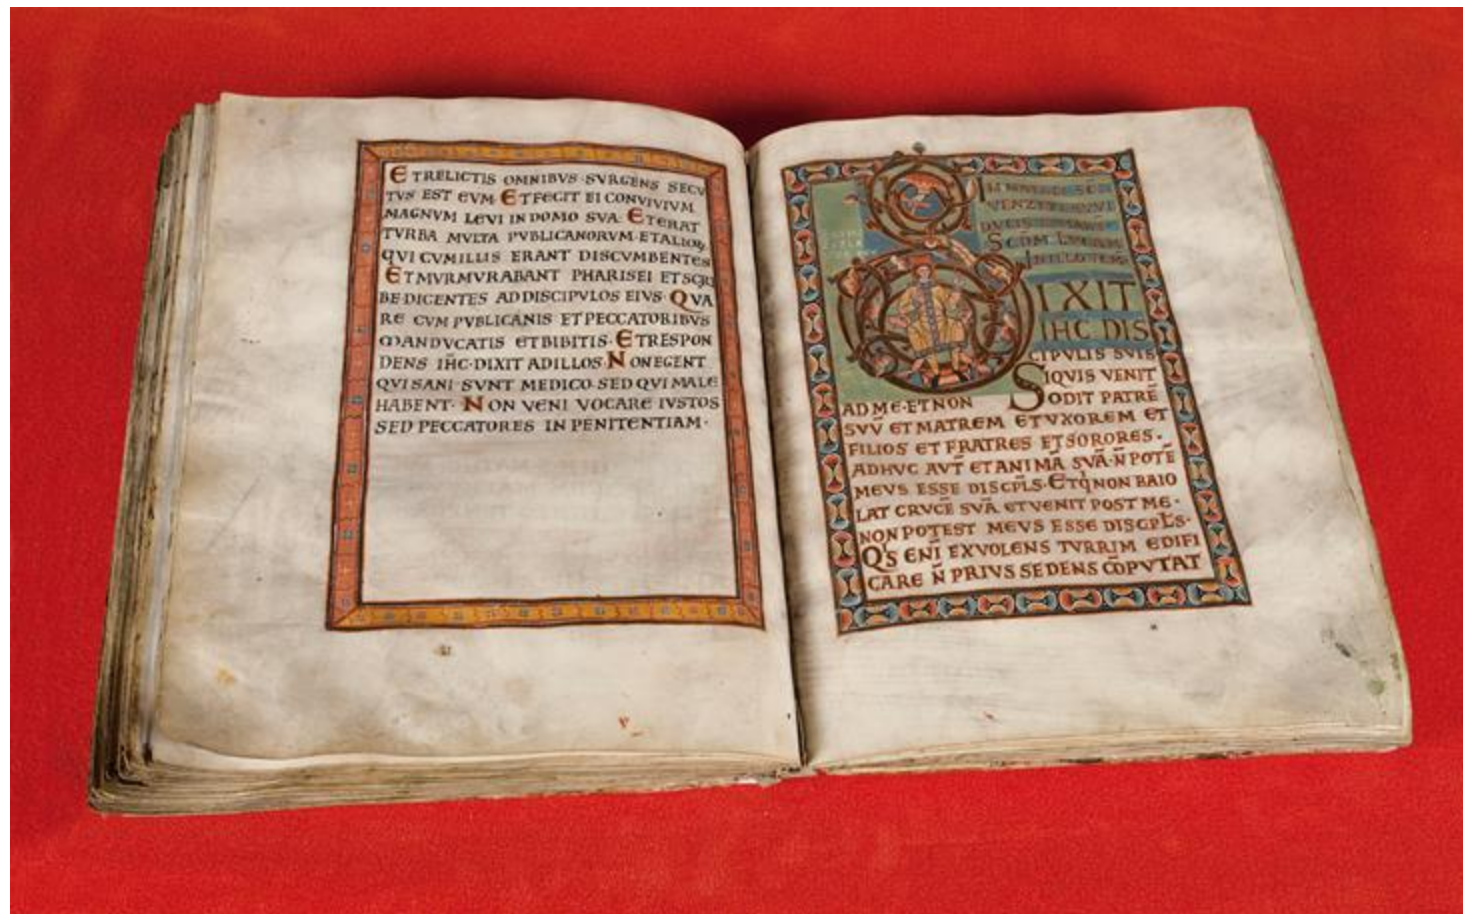 ETRELICTIS OMNIBVS·SVRGENS SECV
TVS EST EVM·ETFECIT EI CONVIVIVM
MAGNVM LEVI IN DOMO SVA·ETERAT
TVRBA MVLTA PVBLICANORVM·ETALIOR
QVI CVMILLIS ERANT DISCVMBENTES
ETMVRMVRABANT PHARISEI ETSCRI
BE·DICENTES ADDISCIPVLOS EIVS·QVA
RE CVM PVBLICANIS ETPECCATORIBVS
MANDVCATIS ETBIBITIS·ETRESPON
DENS IHC·DIXIT ADILLOS·NONEGENT
QVI SANI SVNT MEDICO·SED QVI MALE
HABENT·NON VENI VOCARE IVSTOS
SED PECCATORES IN PENITENTIAM·
VENZEZLAVI
DVCIS
SCDM LVCAM
IN ILLO TEMP
DIXIT
IHC DIS
CIPVLIS SVIS
SIQVIS VENIT
AD ME·ETNON ODIT PATRĒ
SVV̄ ET MATREM ETVXOREM ET
FILIOS ET FRATRES ETSORORES·
ADHVC AVT̄ ETANIMĀ SVĀ·N̄ POTĒ
MEVS ESSE DISCPLS·ETQ NON BAIO
LAT CRVCĒ SVĀ ETVENIT POST ME·
NON POTEST MEVS ESSE DISCPLS·
Q'S ENĪ EXVOLENS TVRRIM EDIFI
CARE N̄ PRIVS SEDENS CŌPVTAT